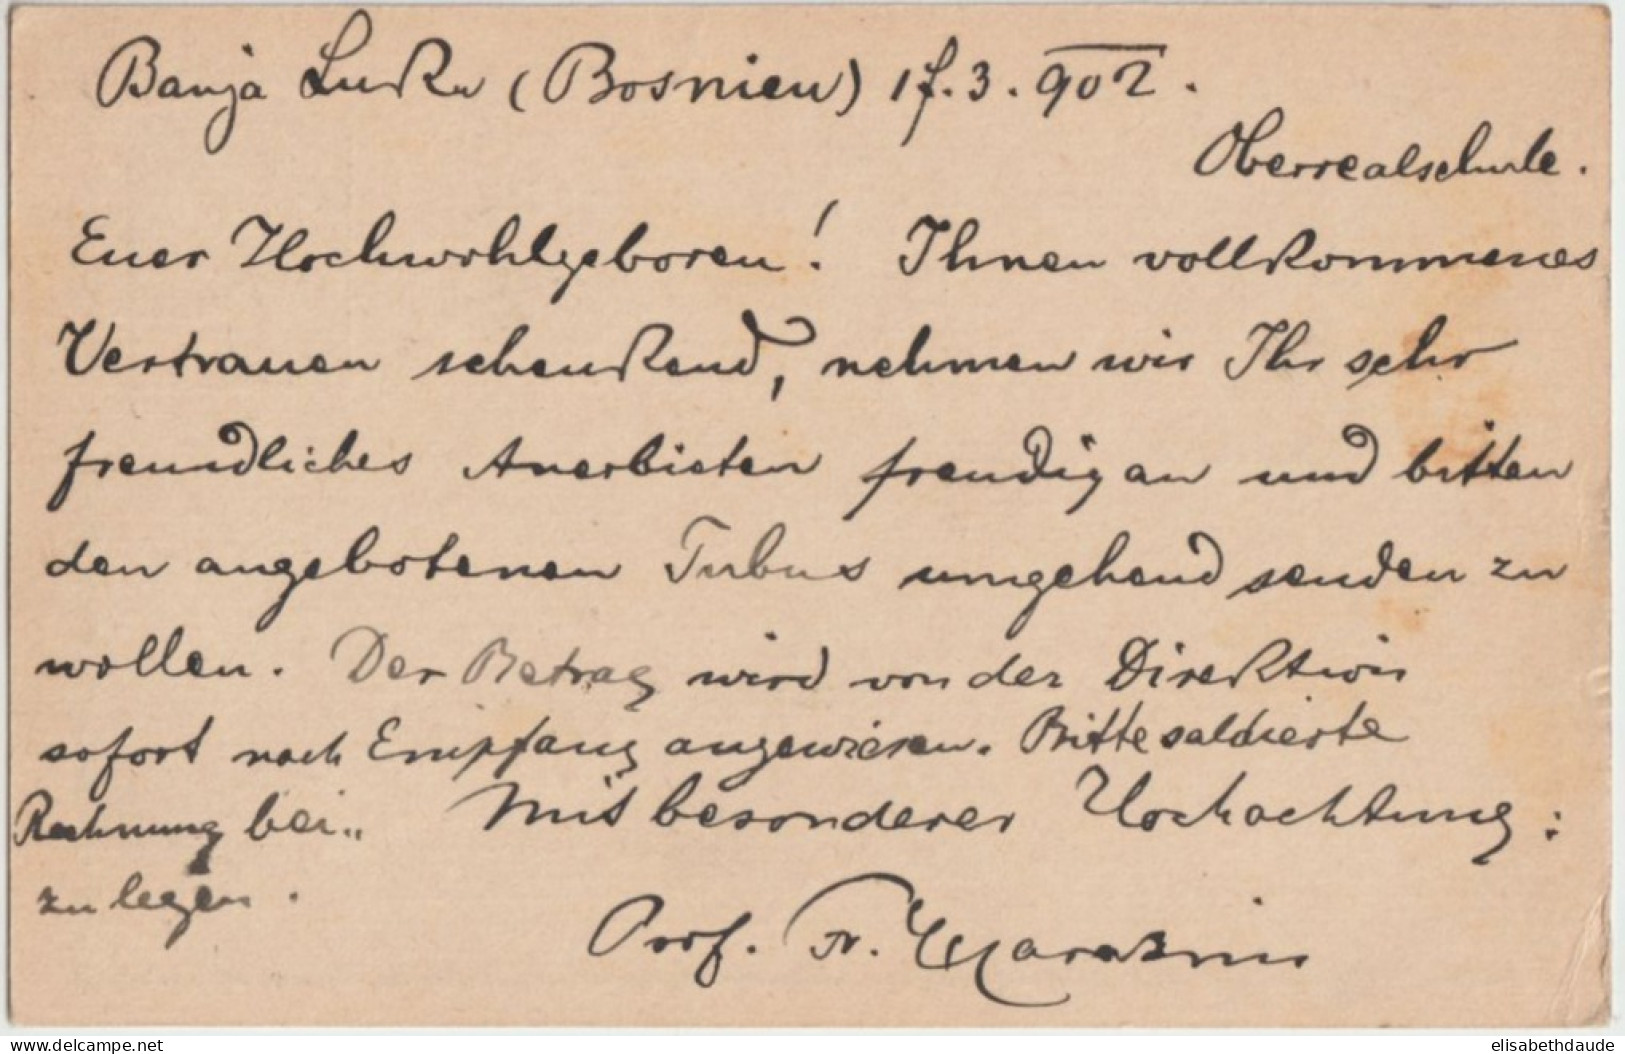 Banja Luka (Bosnien) 17. 3. 902.
Oberrealschule.
Euer Hochwohlgeboren! Ihnen vollkommenes
Vertrauen schenkend, nehmen wir Ihr sehr
freundliches Anerbieten freudig an und bitten
den angebotenen Tubus umgehend senden zu
wollen. Der Betrag wird von der Direktion
sofort nach Empfang angewiesen. Bitte saldierte
Rechnung bei„ Mit besonderer Hochachtung:
zu legen.
Prof. Fr.
www.delcampe.net elisabethdaude